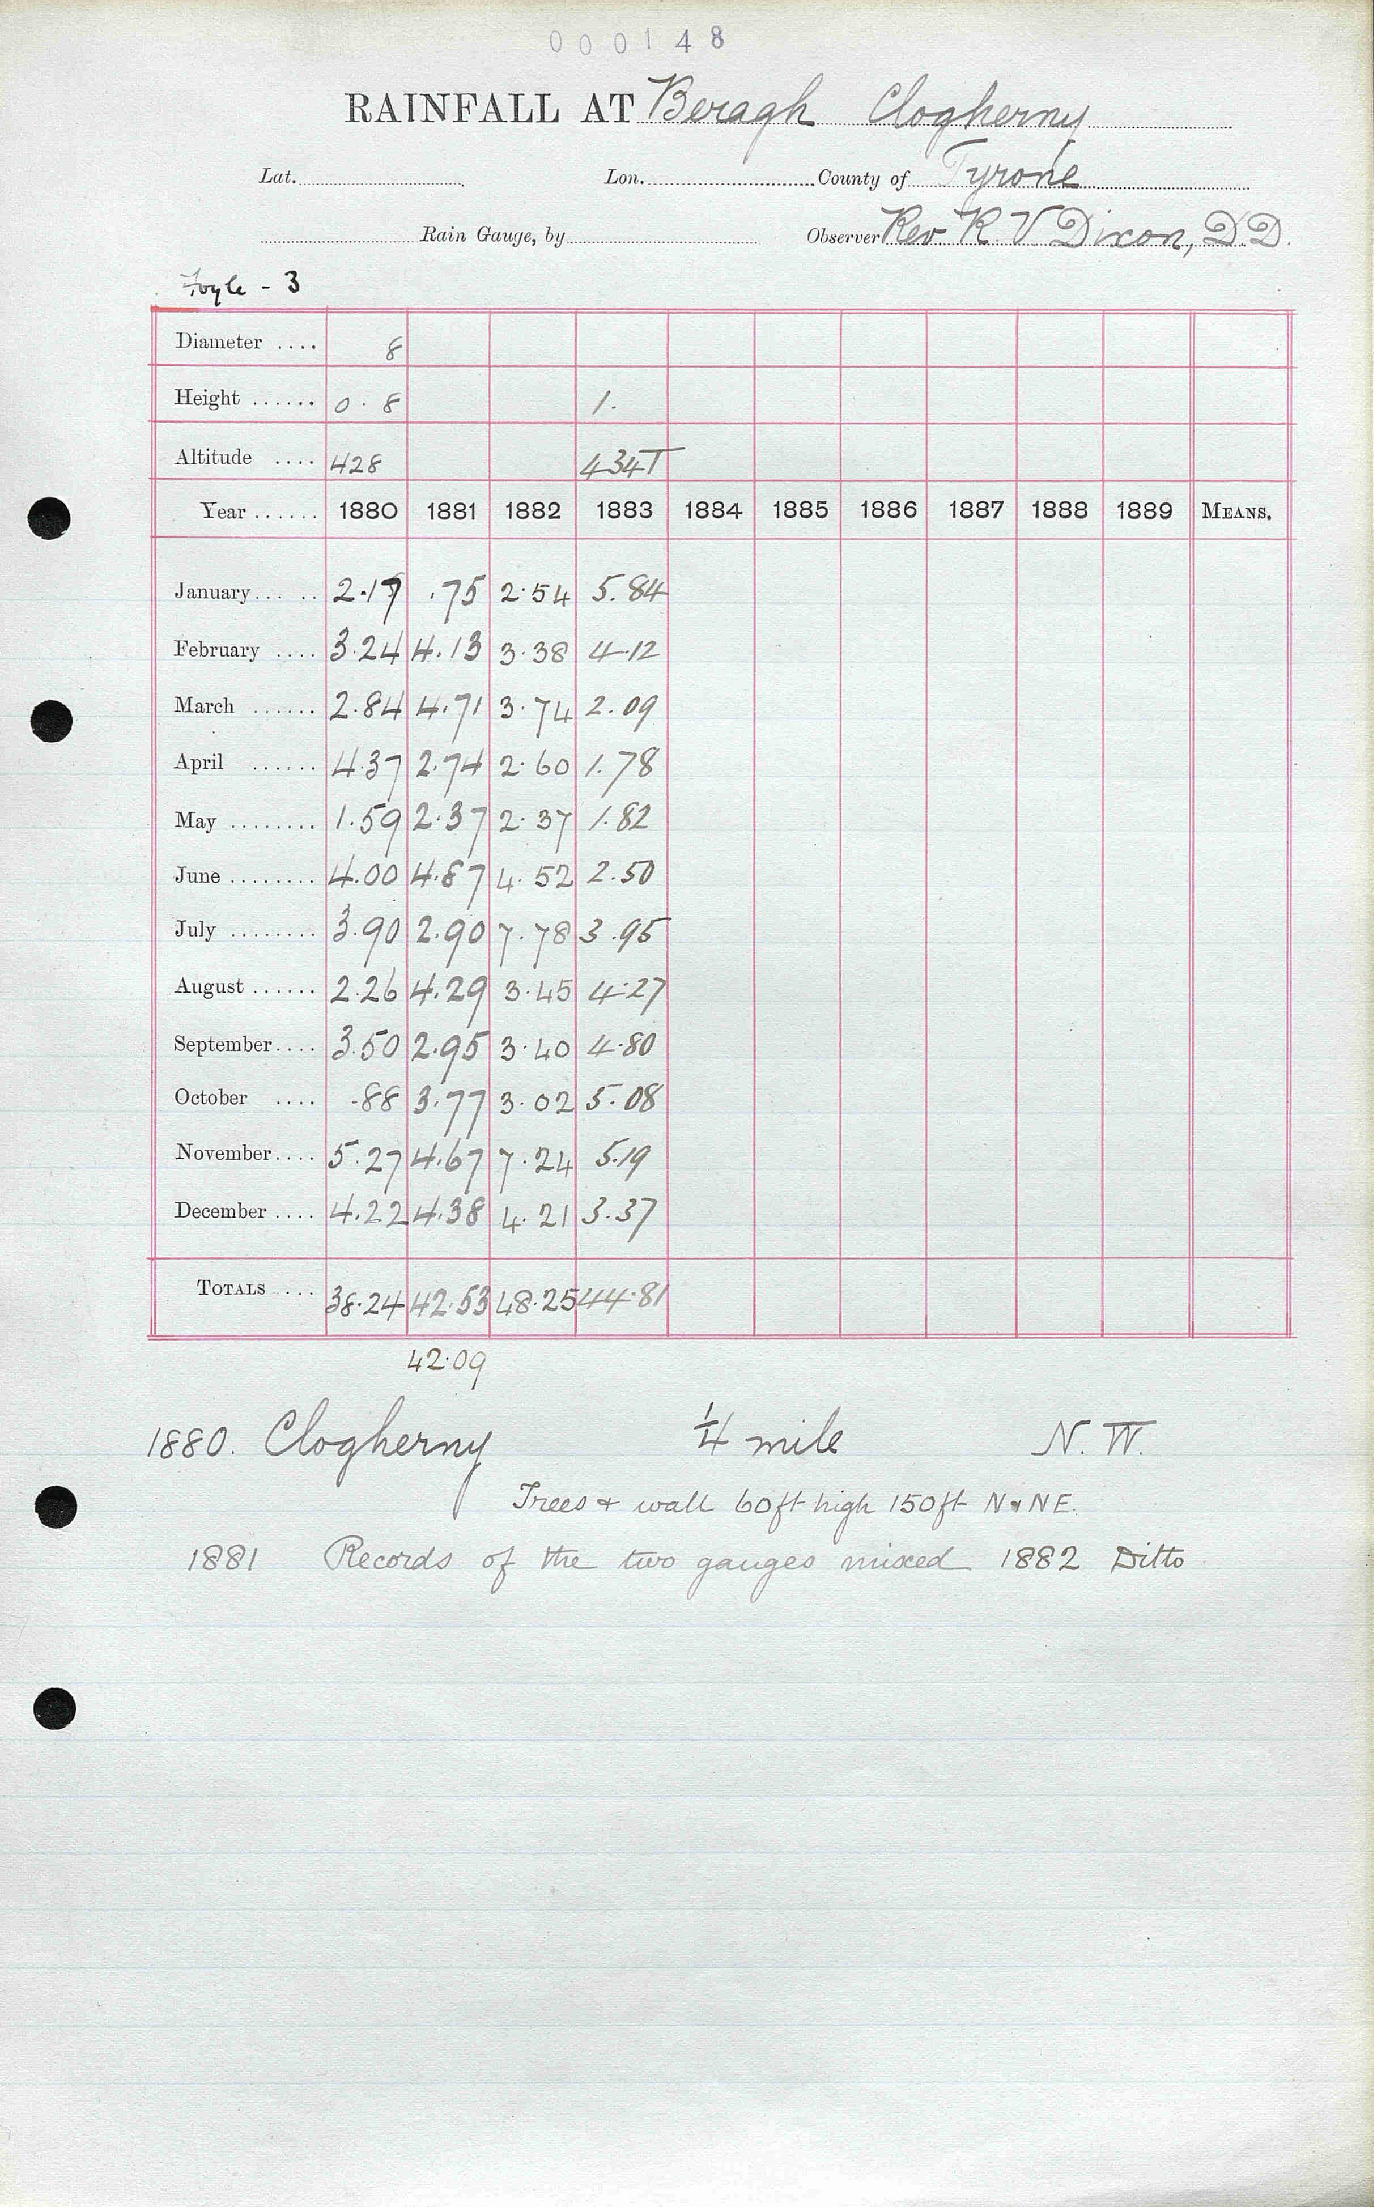 000148
RAINFALL AT Beragh Clogherny
Lat. Lon. County of Tyrone
Rain Gauge, by Observer Rev R V Dixon, D.D.
Foyle - 3
Diameter .... 8
Height ...... 0.8 1.
Altitude .... 428 434T
Year ...... 1880 1881 1882 1883 1884 1885 1886 1887 1888 1889 MEANS.
January ..... 2.17 .75 2.54 5.84
February .... 3.24 4.13 3.38 4.12
March ...... 2.84 4.71 3.74 2.09
April ...... 4.37 2.74 2.60 1.78
May ........ 1.59 2.37 2.37 1.82
June ........ 4.00 4.87 4.52 2.50
July ........ 3.90 2.90 7.78 3.95
August ...... 2.26 4.29 3.45 4.27
September .... 3.50 2.95 3.40 4.80
October .... .88 3.77 3.02 5.08
November .... 5.27 4.67 7.24 5.19
December .... 4.22 4.38 4.21 3.37
TOTALS .... 38.24 42.53 48.25 44.81
42.09
1880. Clogherny 1/4 mile N.W.
Trees & wall 60ft high 150ft N & NE.
1881 Records of the two gauges mixed 1882 Ditto